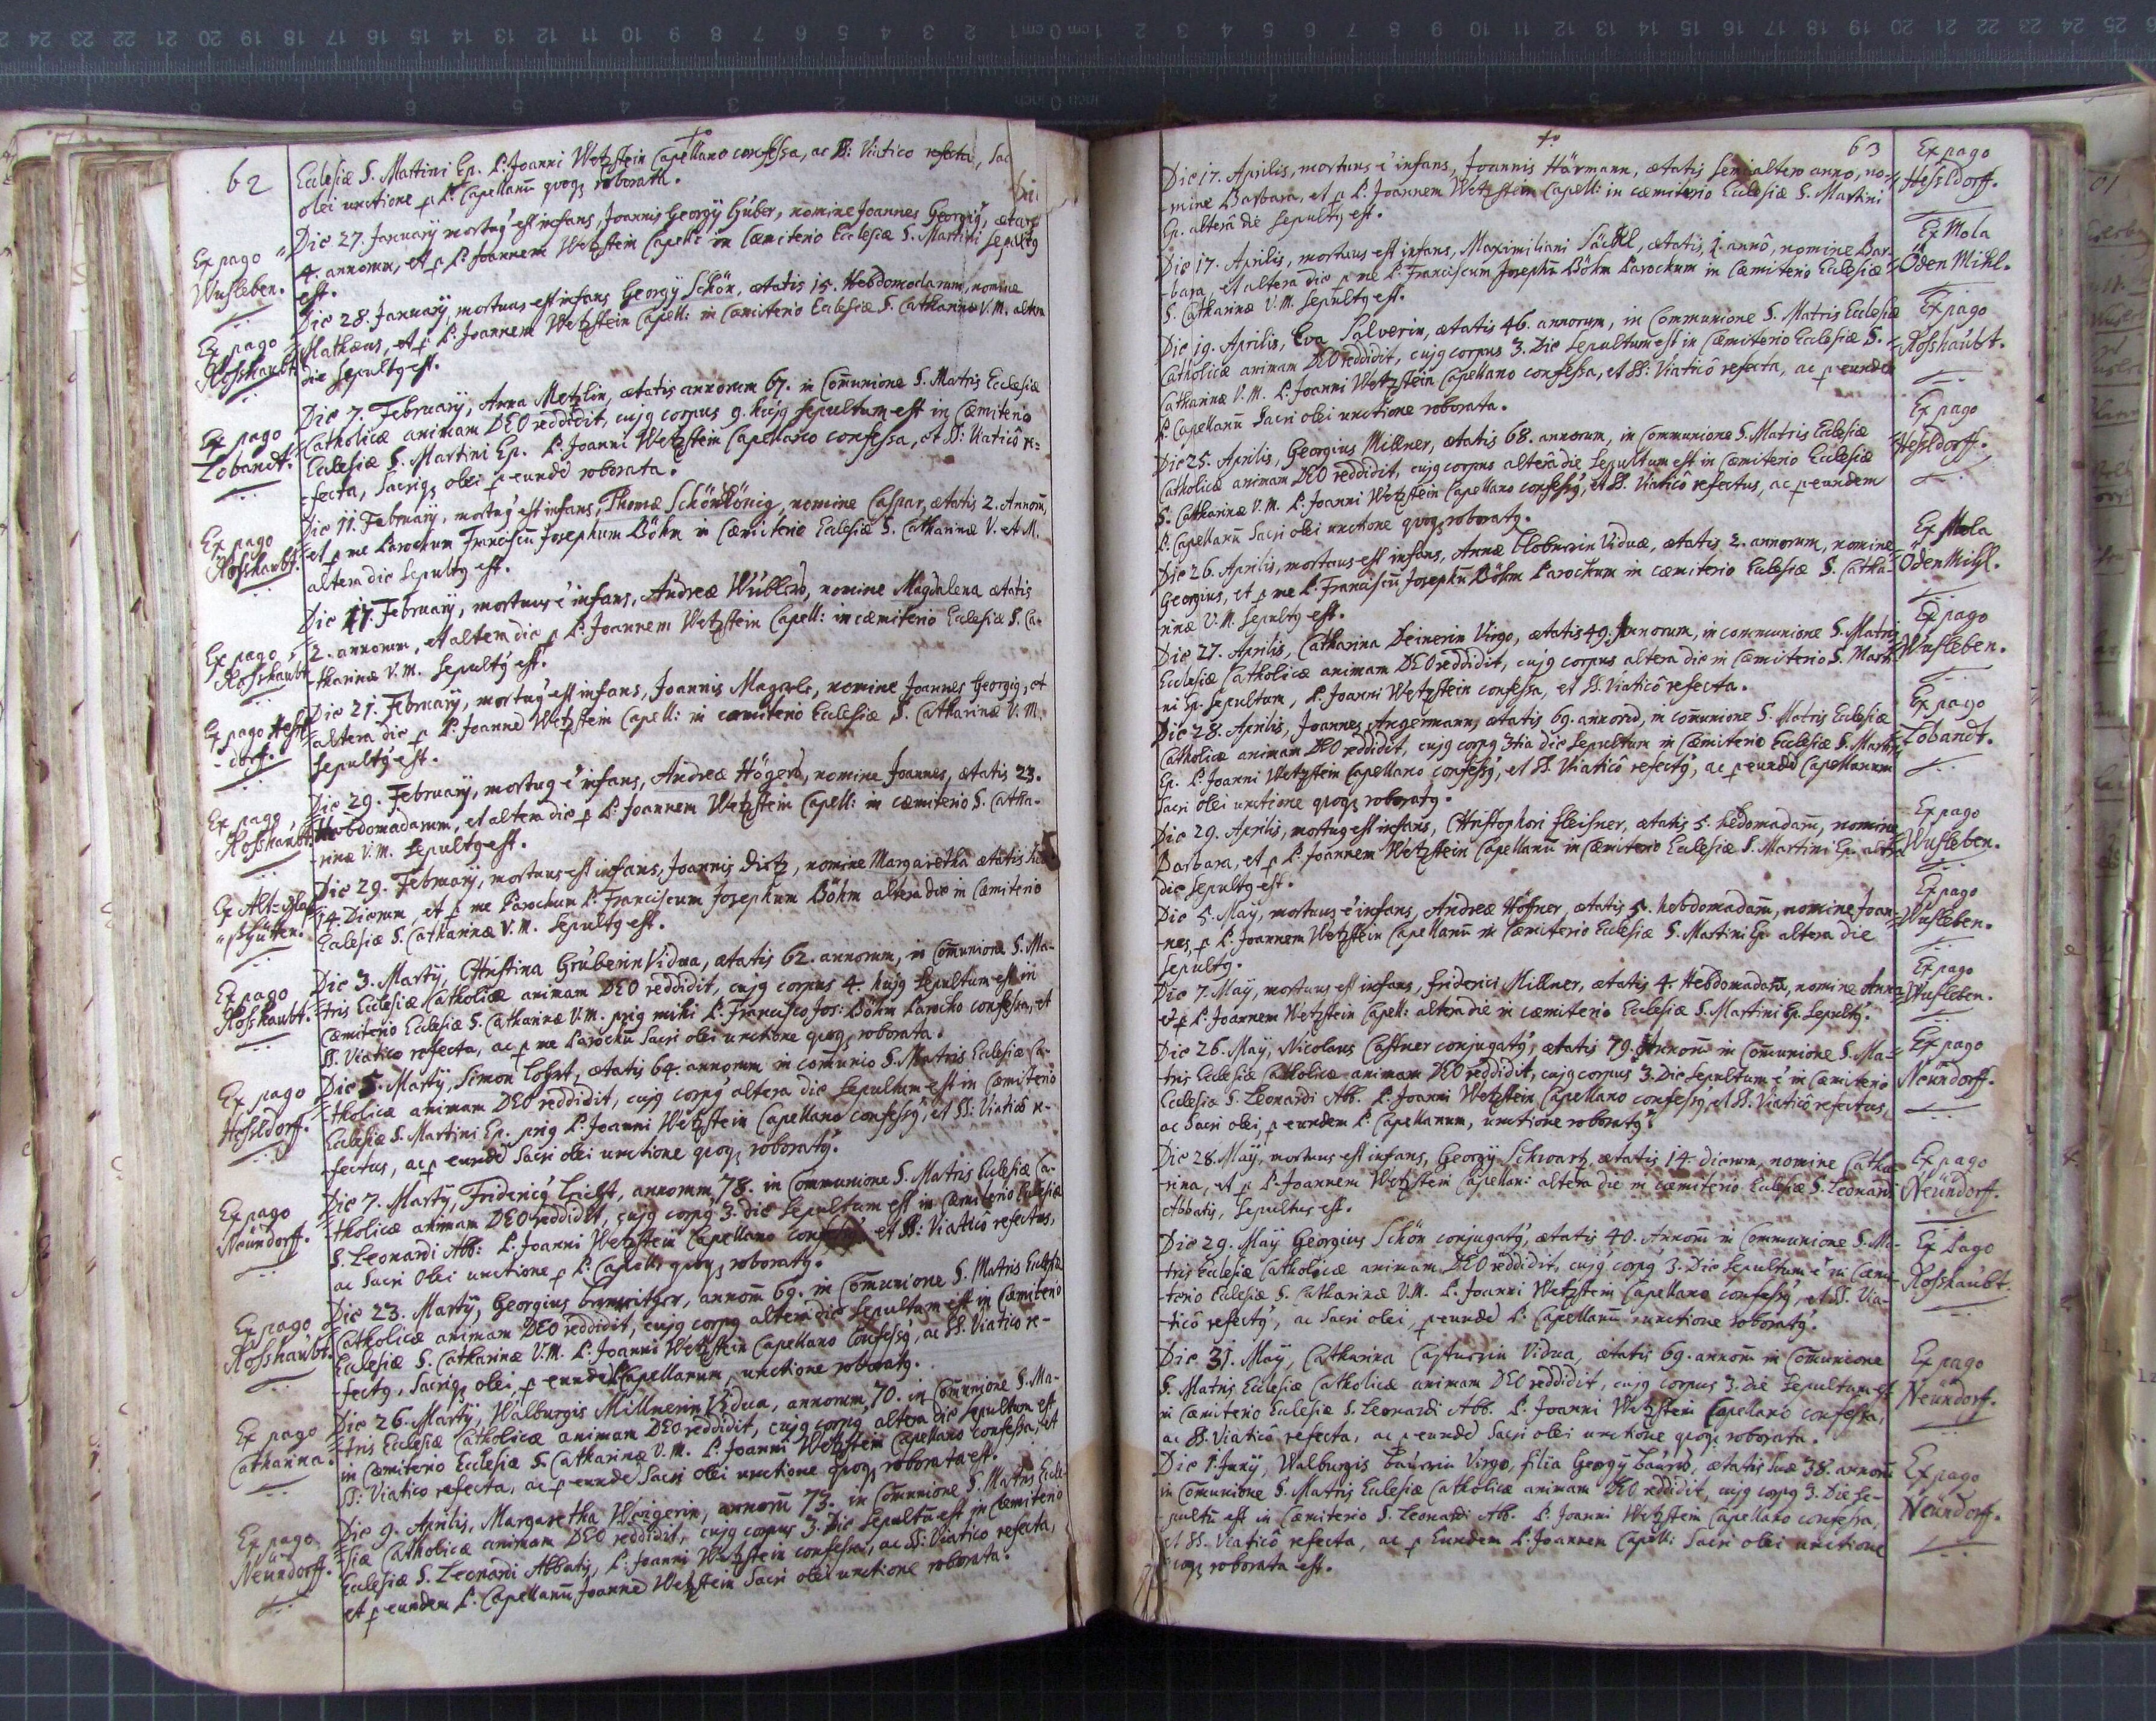 62
Ecclesiæ S. Martini Ep. P. Joanni Wetzstein Capellano confessa, ac SS: Viatico refecta, Sac
olei unctione p P. Capellanū quoq3 roborata.
Ex pago
Wusleben.
Die 27. January mortuq est infans, Joannis Georgÿ Guber, nomine Joannes Georgiq, ætatis
4. annorum, et p P. Joannem Wetzstein Capell: in Cæmiterio Ecclesiæ S. Martini Sepultq
est.
Ex pago
Rosshaubt.
Die 28. January, mortuus est infans Georgÿ Schön, ætatis 15. Hebdomodarum, nomine
Mathæus, et p P. Joannem Wetzstein Capell: in Cæmiterio Ecclesiæ S. Catharinæ V. M. altera
die Sepultq est.
Ex pago
Zobandt.
Die 7. February, Anna Metzlin, ætatis annorum 67. in Com̄unione S. Matris Ecclesiæ
Catholicæ animam DEO reddidit, cujq corpus 9. hujq sepultum est in Cæmiterio
Ecclesiæ S. Martini Ep. P. Joanni Wetzstein Capellano confessa, et SS: Viaticô re-
-fecta, Sacriq3 olei p eundē roborata.
Ex pago
Rosshaubt.
Die 11. February, mortuq est infans, Thomæ Schönkönig, nomine Caspar, ætatis 2. Annorū,
et p me Parochum Franciscū Josephum Böhm in Cæmiterio Ecclesiæ S. Catharinæ V. et M.
altera die Sepultq est.
Ex pago
Rosshaubt.
Die 17. February, mortuus ē infans, Andreæ Wublers, nomine Magdalena ætatis
2. annorum, et altera die p P. Joannem Wetzstein Capell: in cæmiterio Ecclesiæ S. Ca-
-tharinæ V. M. Sepultq est.
Ex pago Hessl
-dorff.
Die 21. February, mortuq est infans, Joannis Magerls, nomine Joannes Georgiq, et
altera die p P. Joannē Wetzstein Capell: in cæmiterio Ecclesiæ S. Catharinæ V. M.
Sepultq est.
Ex pago
Rosshaubt.
Die 29. February, mortuq ē infans, Andreæ Högers, nomine Joannes, ætatis 23.
Hebdomadarum, et altera die p P. Joannem Wetzstein Capell: in cæmiterio S. Catha-
-rinæ V. M. Sepultq est.
Ex Alt=glas
=hütten.
Die 29. February, mortuus est infans, Joannis Dietz, nomine Margaretha ætatis
14. Dierum, et p me Parochum P. Franciscum Josephum Böhm altera die in Cæmiterio
Ecclesiæ S. Catharinæ V. M. Sepultq est.
Ex pago
Rosshaubt.
Die 3. Marty, Christina Gruberin Vidua, ætatis 62. annorum, in Com̄unione S. Ma-
-tris Ecclesiæ Catholicæ animam DEO reddidit, cujq corpus 4. hujq Sepultum est in
Cæmiterio Ecclesiæ S. Catharinæ V. M. priq mihi P. Francisco Jos: Böhm Parocho confessa, et
SS. Viatico refecta, ac p me Parochū Sacri olei unctione quoq3 roborata.
Ex pago
Hessldorf.
Die 5. Marty, Simon Lohrt, ætatis 64. annorum in com̄unio S. Matris Ecclesiæ Ca-
-tholicæ animam DEO reddidit, cujq corpq altera die Sepultum est in Cæmiterio
Ecclesiæ S. Martini Ep. priq P. Joanni Wetzstein Capellano confessq, et SS: Viaticô re-
-fectus, ac p eundē Sacri olei unctione quoq3 roboratq.
Ex pago
Neundorff.
Die 7. Marty, Fridericq Leicht, annorum 78. in Communione S. Matris Ecclesiæ Ca-
-tholicæ animam DEO reddidit, cujq corpq 3. die Sepultum est in Cæmiterio Ecclesiæ
S. Leonardi Abb: P. Joanni Wetzstein Capellano confessq, et SS: Viaticô refectus,
ac Sacri Olei unctione p P. Capell: quoq3 roboratq.
Ex pago
Rosshaubt.
Die 23. Marty, Georgius annorū 69. in Com̄unione S. Matris Ecclesiæ
Catholicæ animam DEO reddidit, cujq corpq altera die Sepultum est in Cæmiterio
Ecclesiæ S. Catharinæ V. M. P. Joanni Wetzstein Capellano Confessq, ac SS. Viatico re-
-fectq, Sacriq3 olei, p eundē Capellanum, unctione roboratq.
Ex pago
Catharina.
Die 26. Marty, Walburgis Millnerin Vidua, annorum 70. in Com̄unione S. Ma-
-tris Ecclesiæ Catholicæ animam DEO reddidit, cujq corpq altera die Sepultum est
in Cæmiterio Ecclesiæ S. Catharinæ V. M. P. Joanni Wetzstein Capellano confessa, et
SS: Viatico refecta, ac p eundē Sacri Olei unctione quoq3 roborata est.
Ex pago
Neundorff.
Die 9. Aprilis, Margaretha Weigerin, annorū 73. in Com̄unione S. Matris Eccle-
-siæ Catholicæ animam DEO reddidit, cujq corpus 3. Die Sepultū est in Cæmiterio
Ecclesiæ S. Leonardi Abbatis, P. Joanni Wetzstein confessa, ac SS: Viatico refecta,
et p eundem P. Capellanū Joannē Wetzstein Sacri olei unctione roborata.
63
Die 17. Aprilis, mortuus ē infans, Joannis Härmann, ætatis Semialtero anno, no-
-mine Barbara, et p P. Joannem Wetzstein Capell: in cæmiterio Ecclesiæ S. Martini
Ep. alterâ die Sepultq est.
Ex pago
Hessldorff.
Die 17. Aprilis, mortuus est infans, Maximiliani Säckl, ætatis, 1. annô, nomine Bar-
-bara, et altera die p me P. Franciscum Josephū Böhm Parochum in Cæmiterio Ecclesiæ
S. Catharinæ V. M. Sepultq est.
Ex Mola
Öden Mihl.
Die 19. Aprilis, Eva Salverin, ætatis 46. annorum, in Communione S. Matris Ecclesiæ
Catholicæ animam DEO reddidit, cujq corpus 3. Die Sepultum est in Cæmiterio Ecclesiæ S.
Catharinæ V. M. P. Joanni Wetzstein Capellano confessa, et SS: Viaticô refecta, ac p eundem
P. Capellanū Sacri olei unctione roborata.
Ex pago
Rosshaubt.
Die 25. Aprilis, Georgius Millner, ætatis 68. annorum, in Communione S. Matris Ecclesiæ
Catholicæ animam DEO reddidit, cujq corpus alterâ die Sepultum est in Cæmiterio Ecclesiæ
S. Catharinæ V. M. P. Joanni Wetzstein Capellano confessq, et SS. Viaticô refectus, ac p eundem
P. Capellanū Sacri olei unctione quoq3 roboratq.
Ex pago
Hessldorff.
Die 26. Aprilis, mortuus est infans, Annæ Globnerin Viduæ, ætatis 2. annorum, nomine
Georgius, et p me P. Franciscū Josephū Böhm Parochum in cæmiterio Ecclesiæ S. Catha-
rinæ V. M. Sepultq est.
Ex Mola
Öden Mihl.
Die 27. Aprilis, Catharina Deinerin Virgo, ætatis 49. Annorum, in communione S. Matris
Ecclesiæ Catholicæ animam DEO reddidit, cujq corpus altera die in Cæmiterio S. Marti-
ni Ep. Sepultum, P. Joanni Wetzstein confessa, et SS. Viaticô refecta.
Ex pago
Wusleben.
Die 28. Aprilis, Joannes Angermann, ætatis 69. annorū, in com̄unione S. Matris Ecclesiæ
Catholicæ animam DEO reddidit, cujq corpq 3tia die Sepultum in Cæmiterio Ecclesiæ S. Martini
Ep. P. Joanni Wetzstein Capellano confessq, et SS. Viaticô refectq, ac p eundē Capellanum
Sacri olei unctione quoq3 roboratq.
Ex pago
Zobandt.
Die 29. Aprilis, mortuq est infans, Christophori Fleisner, ætatis 5. hebdomadarū, nomine
Barbara, et p P. Joannem Wetzstein Capellanū in Cæmiterio Ecclesiæ S. Martini Ep. altera
die Sepultq est.
Ex pago
Wusleben.
Die 5. May, mortuus ē infans, Andreæ Höffner, ætatis 5. hebdomadarū, nomine Joan-
-nes, p P. Joannem Wetzstein Capellanū in Cæmiterio Ecclesiæ S. Martini Ep. altera die
Sepultq.
Ex pago
Wusleben.
Die 7. May, mortuus est infans, Friderici Millner, ætatis 4. Hebdomadarū, nomine Anna
et p P. Joannem Wetzstein Capell: altera die in cæmiterio Ecclesiæ S. Martini Ep. Sepultq.
Ex pago
Wusleben.
Die 26. May, Nicolaus Castner conjugatq, ætatis 79. Annorū in Com̄unione S. Ma-
-tris Ecclesiæ Catholicæ animam DEO reddidit, cujq corpus 3. Die Sepultum ē in Cæmiterio
Ecclesiæ S. Leonardi Abb. P. Joanni Wetzstein Capellano confessq, et SS. Viaticô refectus,
ac Sacri olei, p eundem P. Capellanum, unctione roboratq.
Ex pago
Neundorff.
Die 28. May, mortuus est infans, Georgÿ Schwartz, ætatis 14. dierum, nomine Catha-
-rina, et p P. Joannem Wetzstein Capellan: altera die in cæmiterio Ecclesiæ S. Leonardi
Abbatis, Sepultus est.
Ex pago
Neundorff.
Die 29. May Georgius Schön conjugatq, ætatis 40. Annorū in Communione S. Ma-
-tris Ecclesiæ Catholicæ animam DEO reddidit, cujq corpq 3. Die Sepultum ē in Cæmi-
-terio Ecclesiæ S. Catharinæ V. M. P. Joanni Wetzstein Capellano confessq, et SS. Via-
-ticô refectq, ac Sacri olei, p eundē P. Capellanū unctione roboratq.
Ex Pago
Rosshaubt.
Die 31. May, Catharina Castnerin Vidua, ætatis 69. annorū in Com̄unione
S. Matris Ecclesiæ Catholicæ animam DEO reddidit, cujq corpus 3. Die Sepultum est
in Cæmiterio Ecclesiæ S. Leonardi Abb. P. Joanni Wetzstein Capellano confessa,
ac SS. Viatico refecta, ac p eundē Sacri olei unctione quoq3 roborata.
Ex pago
Neundorf.
Die 1. Juny, Walburgis Baurin Virgo, filia Georgÿ Baurs, ætatis suæ 38. annorū
in Com̄unione S. Matris Ecclesiæ Catholicæ animam DEO reddidit, cujq corpq 3. Die Se-
-pultū est in Cæmiterio S. Leonardi Ab. P. Joanni Wetzstein Capellano confessa,
et SS. Viaticô refecta, ac p Eundem P. Joannem Capell: Sacri olei unctione
quoq3 roborata est.
Ex pago
Neundorff.